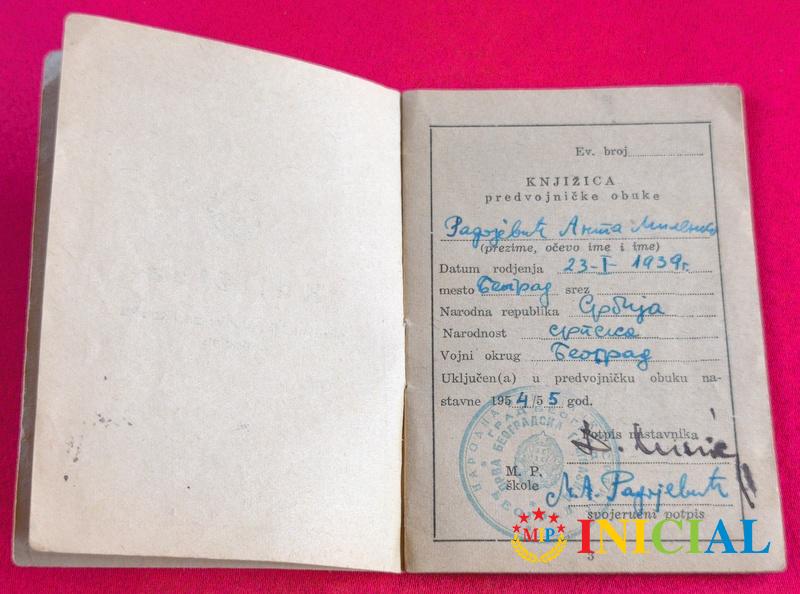 Ev. broj
KNJIŽICA
predvojničke obuke
Радојевић Анта Миленко
(prezime, očevo ime i ime)
Datum rodjenja 23-I-1939г.
mesto Београд srez
Narodna republika Србија
Narodnost српска
Vojni okrug Београд
Uključen(a) u predvojničku obuku na-
stavne 1954/55 god.
Potpis nastavnika
M. P.
škole
М.А. Радојевић
svojeručni potpis
3
НАРОДНА
ПРВА БЕОГРАДСКА
MIP INICIAL